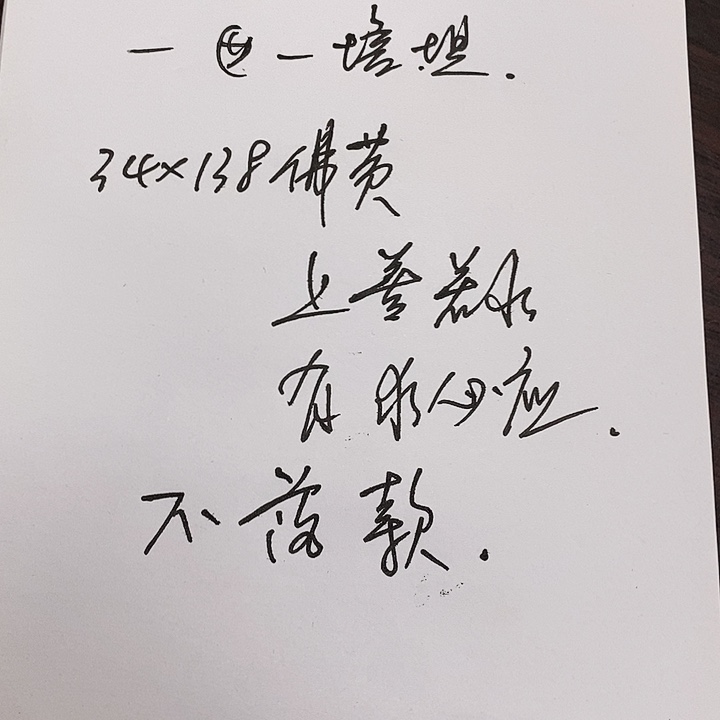 一 一
34×138佛黄
上善若水
有求必应.
不落款.